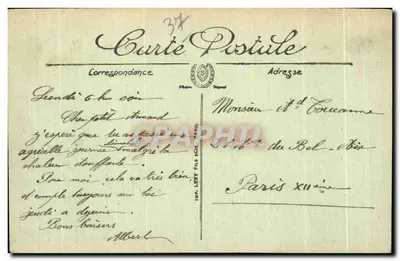 37
Carte Postale
Correspondance
Adresse
Lundi 6 h soir
Cher petit Armand
j'espère que tu as passé
agréable journée malgré la
chaleur étouffante.
Pour moi cela va très bien
et compte toujours sur toi
jeudi a dejeuner.
Bons baisers
Albert
IMP. LEVY FILS
Monsieur Ad
du Bel-Air
Paris XII ème